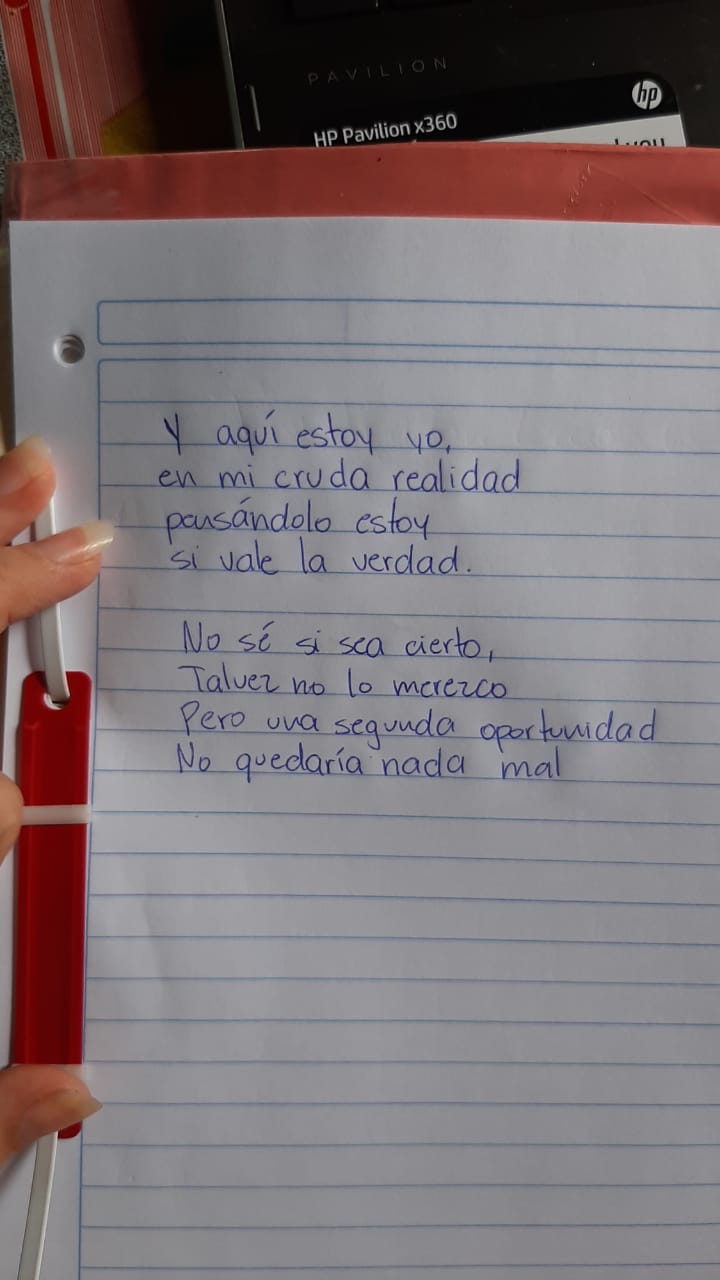 PAVILION
hp
HP Pavilion x360
Y aquí estoy yo,
en mi cruda realidad
pensándolo estoy
si vale la verdad.
No sé si sea cierto,
Talvez no lo merezco
Pero una segunda oportunidad
No quedaría nada mal